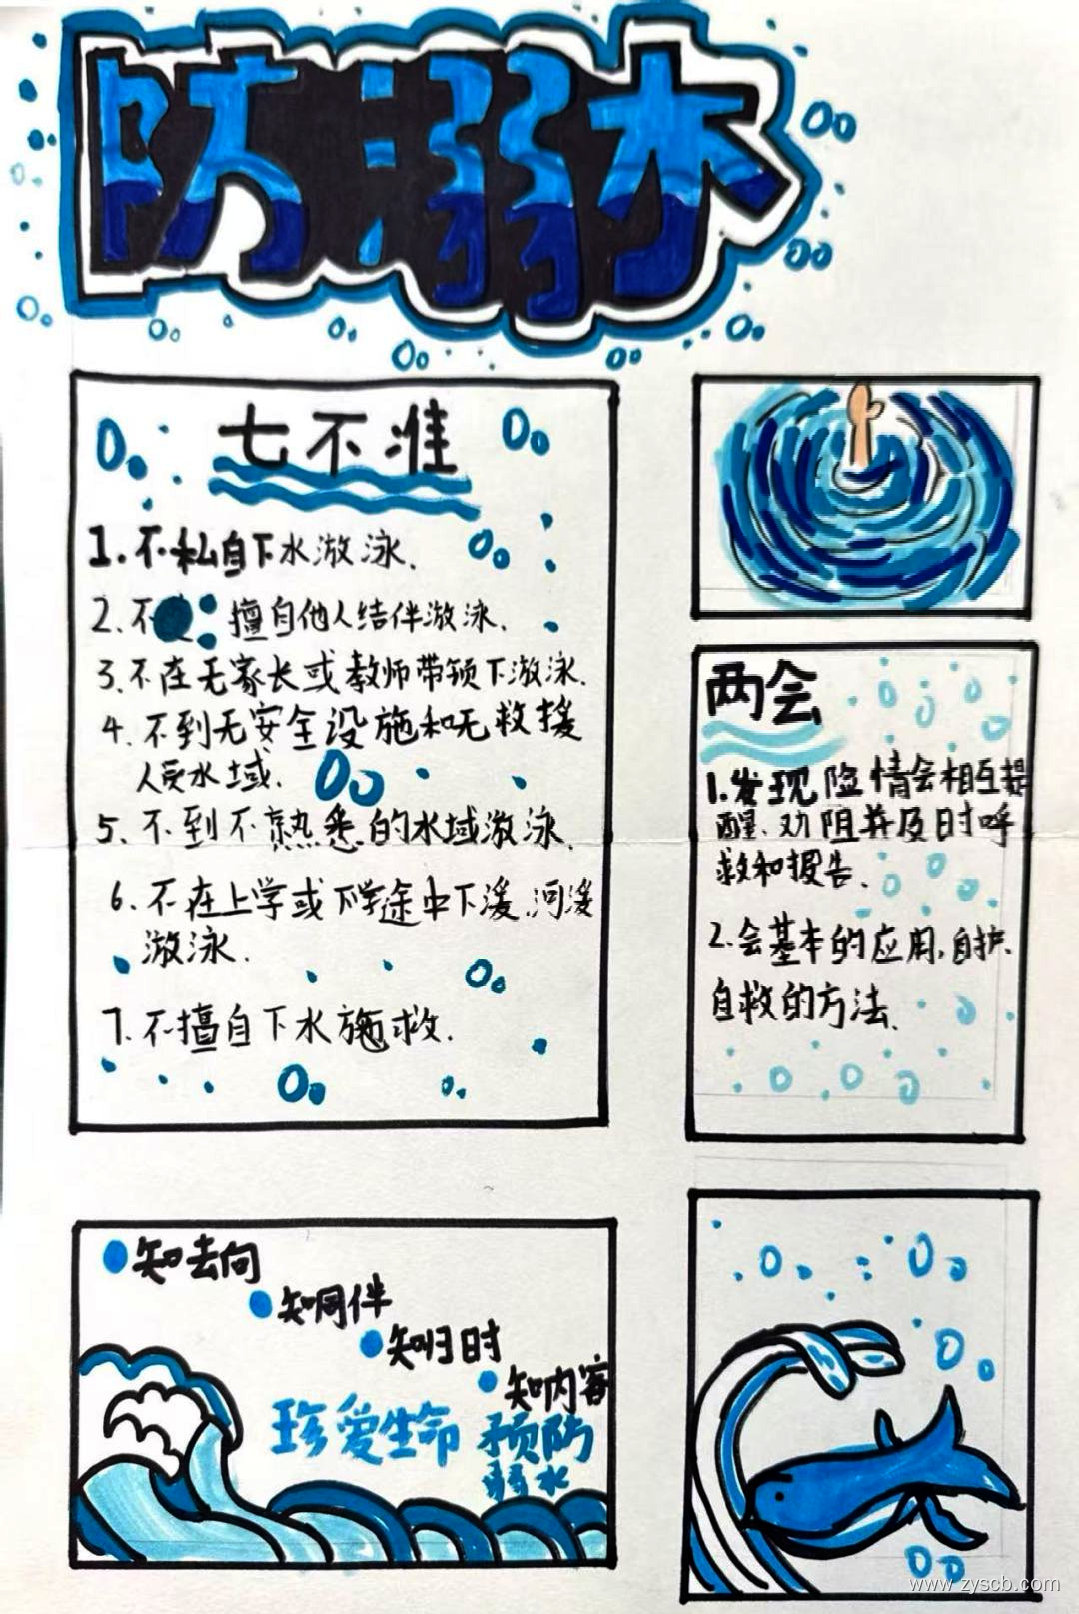 防溺水
七不准
1.不私自下水游泳.
2.不 擅自他人结伴游泳.
3.不在无家长或教师带领下游泳.
4.不到无安全设施和无救援
人员水域.
5.不到不熟悉的水域游泳.
6.不在上学或下学途中下 河
游泳.
7.不擅自下水施救.
两会
1.发现险情会相互提
醒.劝阻并及时呼
救和报告.
2.会基本的应用,自护.
自救的方法.
知去向
知同伴
知归时
知内容
珍爱生命 预防
溺水
www.zyscb.com